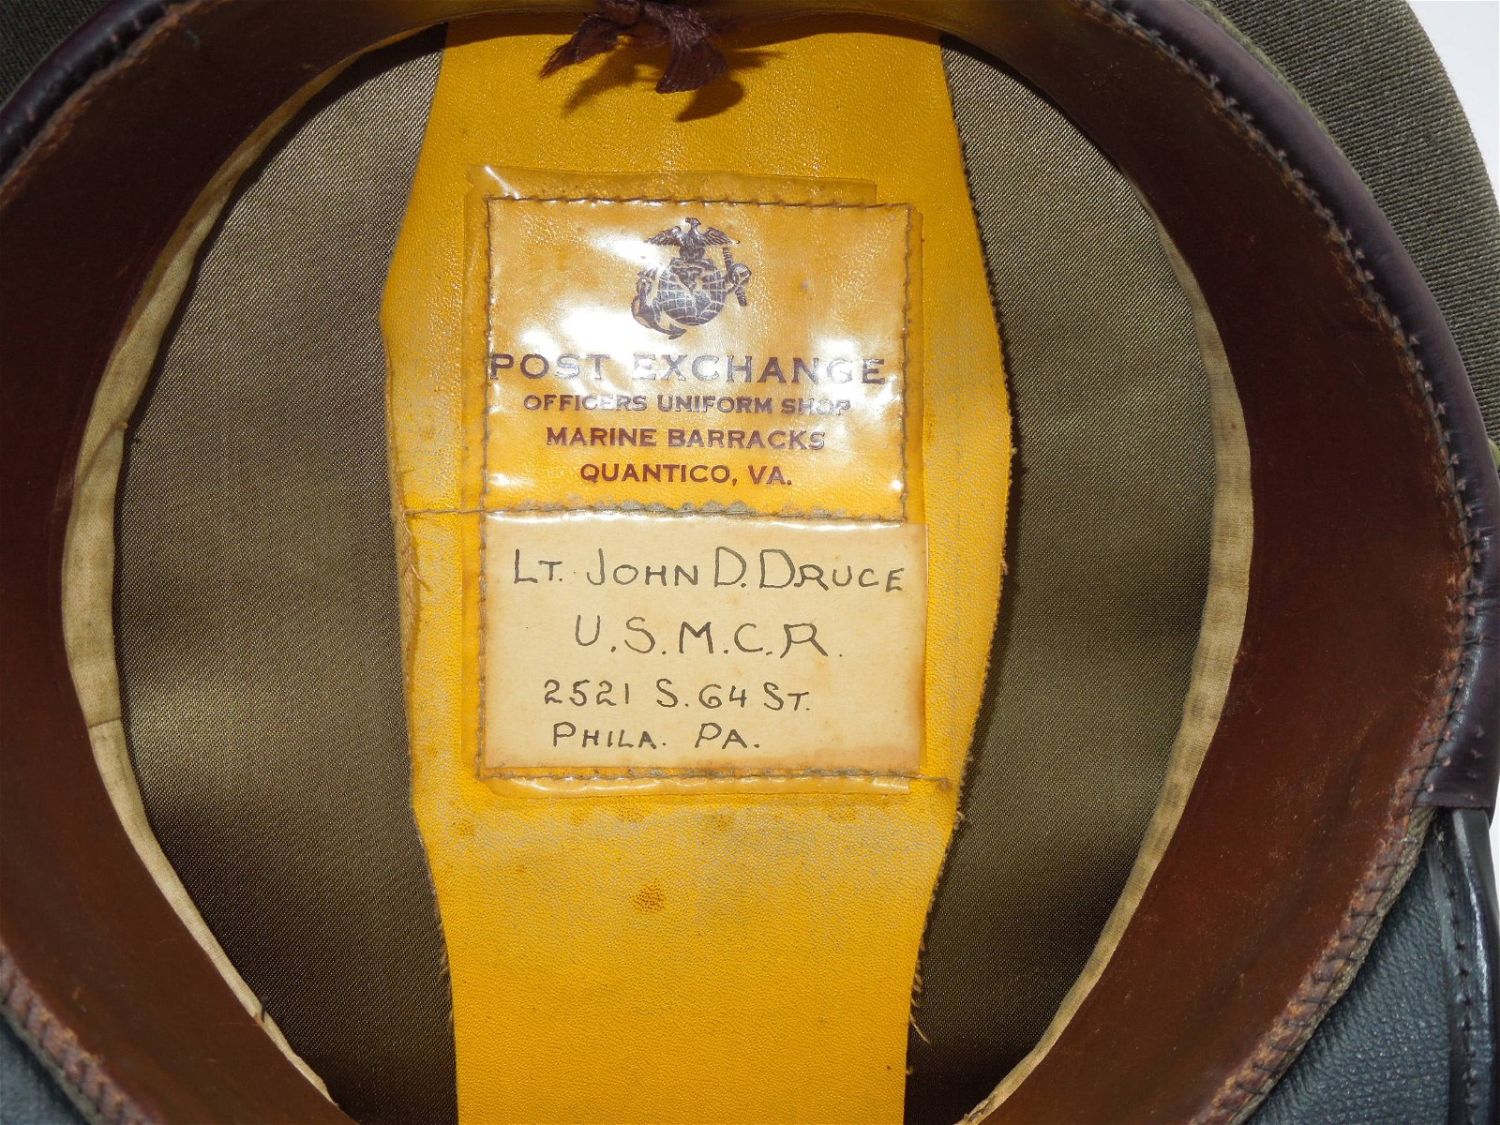 POST EXCHANGE
OFFICERS UNIFORM SHOP
MARINE BARRACKS
QUANTICO, VA.
LT. JOHN D. DRUCE
U.S.M.C.R.
2521 S. 64 ST.
PHILA. PA.